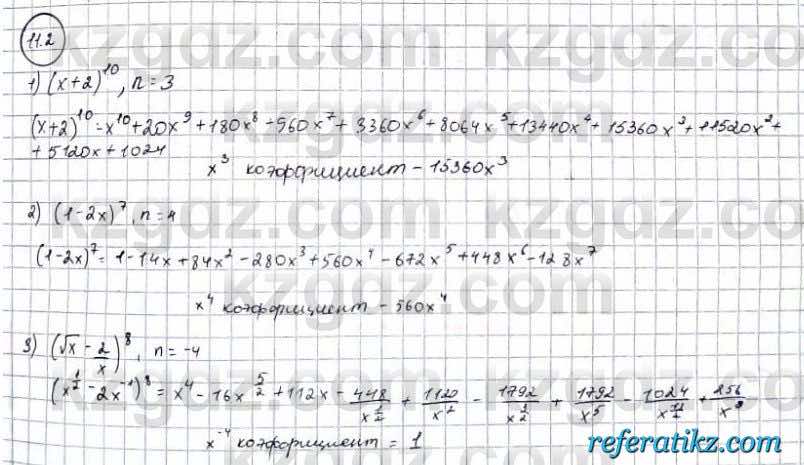 11.2
1) (x+2)^10, n=3
(x+2)^10 = x^10+20x^9+180x^8+960x^7+3360x^6+8064x^5+13440x^4+15360x^3+11520x^2+
+5120x+1024
x^3 коэффициент – 15360x^3
2) (1-2x)^7, n=4
(1-2x)^7 = 1-14x+84x^2-280x^3+560x^4-672x^5+448x^6-128x^7
x^4 коэффициент – 560x^4
3) (√x - 2/x)^8, n=-4
(x^(1/2) - 2x^(-1))^8 = x^4 - 16x^(5/2) + 112x - 448/x^(1/2) + 1120/x^2 - 1792/x^(1/2) + 1792/x^5 - 1024/x^(11/2) + 256/x^8
x^-4 коэффициент = 1
referatikz.com
kzgdz.com